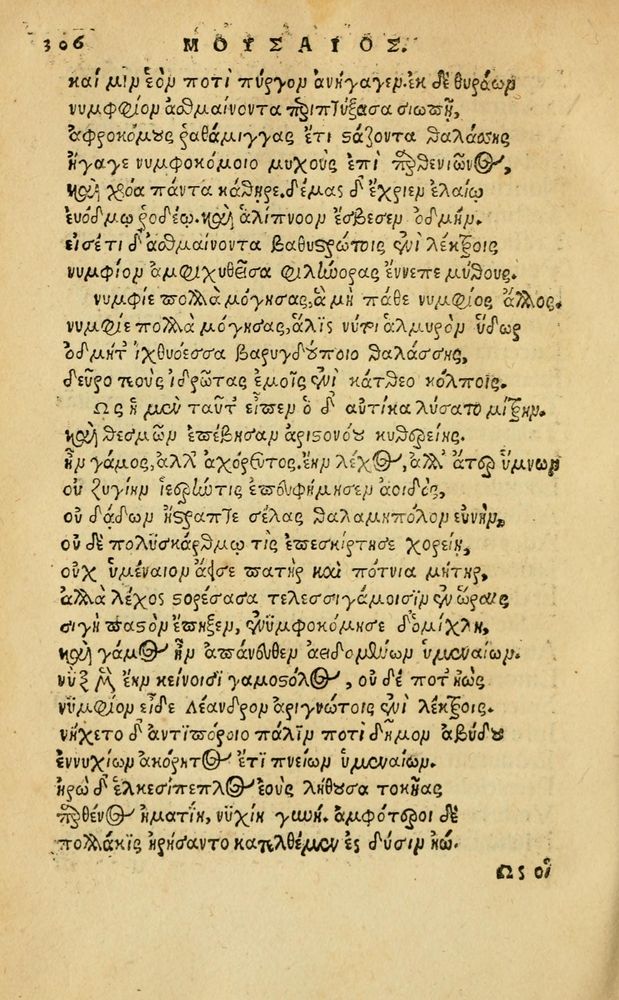 306 ΜΟΥΣΑΙΟΣ.
καί μιν ἑὸν ποτὶ πύργον ἀνήγαγεν. ἐκ δὲ θυράων
νυμφίον ἀσθμαίνοντα περιπτύξασα σιωπῇ,
ἀφροκόμους ῥαθάμιγγας ἔτι στάζοντα θαλάσσης
ἤγαγε νυμφοκόμοιο μυχοὺς ἐπὶ παρθενιῶνος,
καὶ χρόα πάντα κάθηρε. δέμας δ' ἔχριεν ἐλαίῳ
εὐόδμῳ ῥοδέῳ. καὶ ἁλίπνοον ἔσβεσεν ὀδμήν.
εἰσέτι δ' ἀσθμαίνοντα βαθυστρώτοις ἐνὶ λέκτροις
νυμφίον ἀμφιχυθεῖσα φιλήνορας ἔννεπε μύθους.
νυμφίε πολλὰ μόγησας, ἃ μὴ πάθε νυμφίος ἄλλος.
νυμφίε πολλὰ μόγησας, ἅλις νύ τι ἁλμυρὸν ὕδωρ
ὀδμήτ' ἰχθυόεσσα βαρυγδούποιο θαλάσσης,
δεῦρο τεοὺς ἱδρῶτας ἐμοῖς ἐνὶ κάτθεο κόλποις.
Ως ἡ μὲν ταῦτ' εἶπεν ὁ δ' αὐτίκα λύσατο μίτρην.
καὶ θεσμῶν ἐπέβησαν ἀριστονόου κυθερείης.
ἦν γάμος, ἀλλ' ἀχόρευτος. ἔην λέχος, ἀλλ' ἄτερ ὕμνων
οὐ ζυγίην ἱερὴν τις ἐπευφήμησεν ἀοιδός,
οὐ δάδων ἤστραπτε σέλας θαλαμηπόλον εὐνήν,
οὐ δὲ πολυσκάρθμῳ τὶς ἐπεσκίρτησε χορείῃ,
οὐχ ὑμέναιον ἄεισε πατὴρ καὶ πότνια μήτηρ,
ἀλλὰ λέχος στορέσασα τελεσσιγάμοισιν ἐν ὥραις
σιγὴ παστὸν ἔπηξεν, ἐνυμφοκόμησε δ' ὀμίχλη,
καὶ γάμος ἦν ἀπάνευθεν ἀειδομένων ὑμεναίων.
νὺξ μὲν ἔην κείνοισι γαμοστόλος, οὐ δέ ποτ' ἠὼς
νυμφίον εἶδε Λέανδρον ἀριγνώτοις ἐνὶ λέκτροις.
νήχετο δ' ἀντιπόροιο πάλιν ποτὶ δῆμον ἀβύδου
ἐννυχίων ἀκόρητος ἔτι πνείων ὑμεναίων.
ἡρὼ δ' ἑλκεσίπεπλος ἑοὺς λήθουσα τοκῆας
παρθένος ἠματίη, νυχίη γυνή. ἀμφότεροι δὲ
πολλάκις ἠρήσαντο κατελθέμεν ἐς δύσιν ἠώ.
Ως οἱ